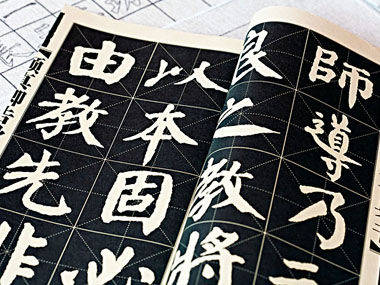 師導乃
良之教將
以本固必
由教先非